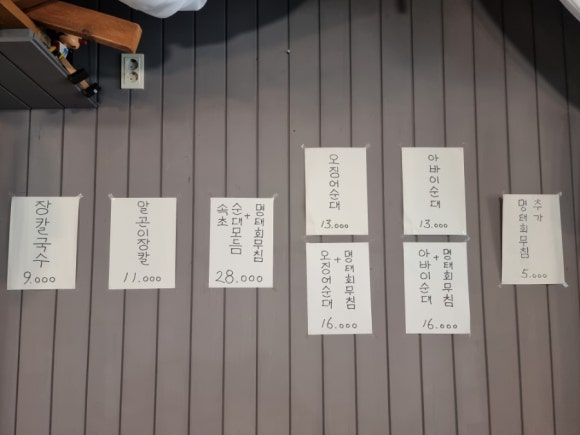 장칼국수
9.000
알곤이장칼
11.000
속초
순대모듬
+
명태회무침
28.000
오징어순대
13.000
오징어순대
+
명태회무침
16.000
아바이순대
13.000
아바이순대
+
명태회무침
16.000
추가
명태회무침
5.000